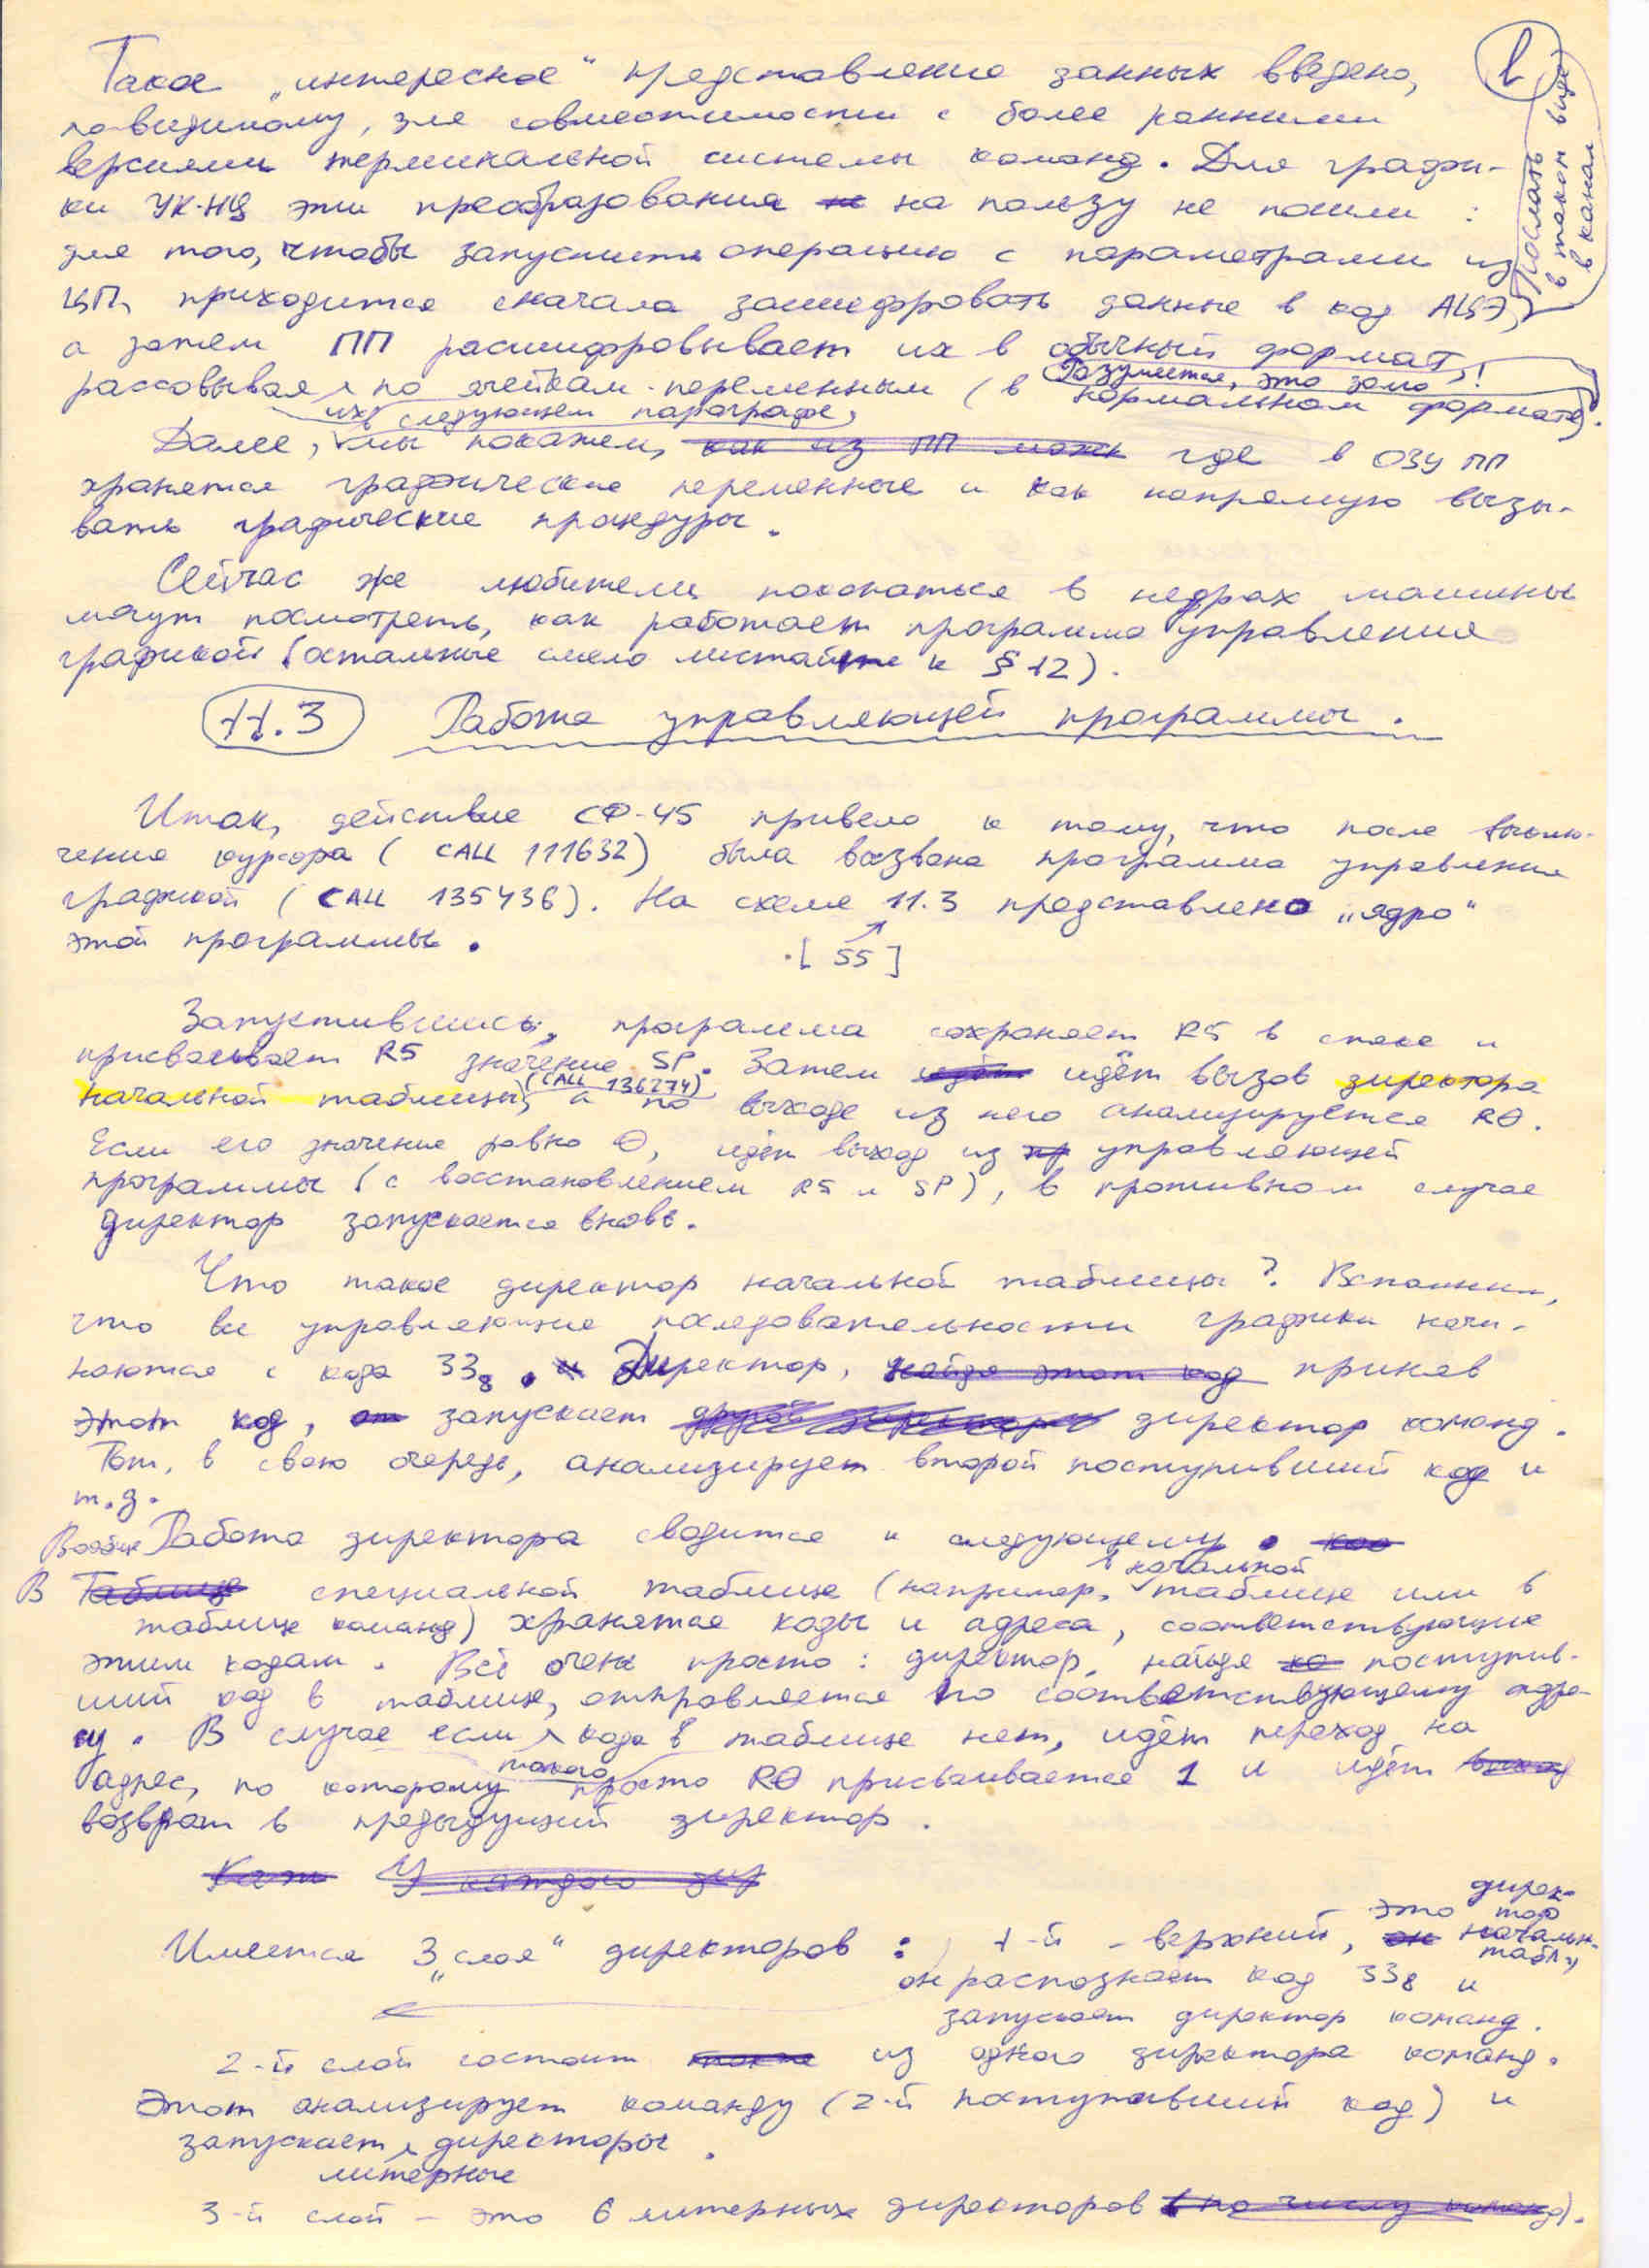 Такое „интересное“ представление данных введено,
по-видимому, для совместимости с более ранними
версиями терминальной системы команд. Для графи-
ки УК-НЦ эти преобразования на пользу не пошли :
для того, чтобы запустить операцию с параметрами из
ЦП, приходится сначала зашифровать данные в код АЦД,
послать в таком виде в канал
а затем ПП расшифровывает их в обычный формат,
рассовывая их по ячейкам-переменным (в нормальном формате).
Разумеется, это замо !
Далее, в следующем параграфе, мы покажем, как из ПП можн где в ОЗУ ПП
хранятся графические переменные и как напрямую вызы-
вать графические процедуры.
Сейчас же любители покопаться в недрах машины
могут посмотреть, как работает программа управления
графикой (остальные смело листайте к § 12).
11.3 Работа управляющей программы.
Итак, действие СФ-45 привело к тому, что после выклю-
чения курсора ( CALL 111632) была вызвана программа управления
графикой ( CALL 135436). На схеме 11.3 представлено „ядро“
этой программы.
[ 55 ]
Запустившись, программа сохраняет R5 в стеке и
присваивает R5 значение SP. Затем идёт идёт вызов директора
начальной таблицы (CALL 136274), а по выходе из него анализируется R0.
Если его значение равно 0, идёт выход из пр управляющей
программы (с восстановлением R5 и SP), в противном случае
директор запускается вновь.
Что такое директор начальной таблицы ? Вспомним,
что все управляющие последовательности графики начи-
наются с кода 33₈. и Директор, найдя этот код приняв
этот код, запускает другой директор директор команд.
Тот, в свою очередь, анализирует второй поступивший код и
т.д.
Вообще Работа директора сводится к следующему.
В Таблице специальной таблице (например, в начальной таблице или в
таблице команд) хранятся коды и адреса, соответствующие
этим кодам. Всё очень просто : директор, найдя поступив-
ший код в таблице, отправляется по соответствующему адре-
су. В случае если такого кода в таблице нет, идёт переход на
адрес, по которому просто R0 присваивается 1 и идёт выход
возврат в предыдущий директор.
У каждого дир
Имеется 3 „слоя“ директоров : 1-й - верхний, он это директор начальн. табл.,
он распознаёт код 33₈ и
запускает директор команд.
2-й слой состоит из одного директора команд.
Этот анализирует команду (2-й поступивший код) и
запускает литерные директоры.
3-й слой - это 6 литерных директоров (по числу команд).